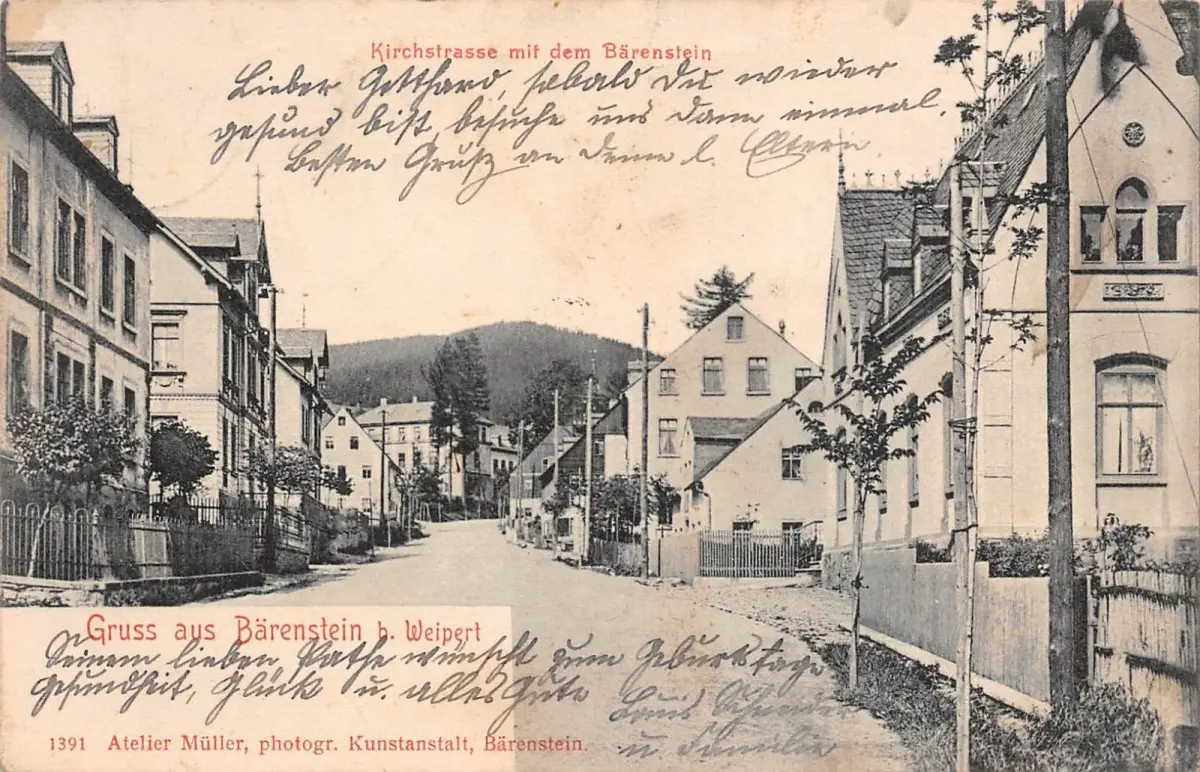 Kirchstrasse mit dem Bärenstein
Lieber Gotthard, sobald Du wieder
gesund bist, besuche uns dann einmal.
Besten Gruß an Deine l. Eltern
Gruss aus Bärenstein b. Weipert
Seinem lieben Pathe wünscht zum Geburtstage
Gesundheit, Glück u. alles Gute
u Familie
1391 Atelier Müller, photogr. Kunstanstalt, Bärenstein.